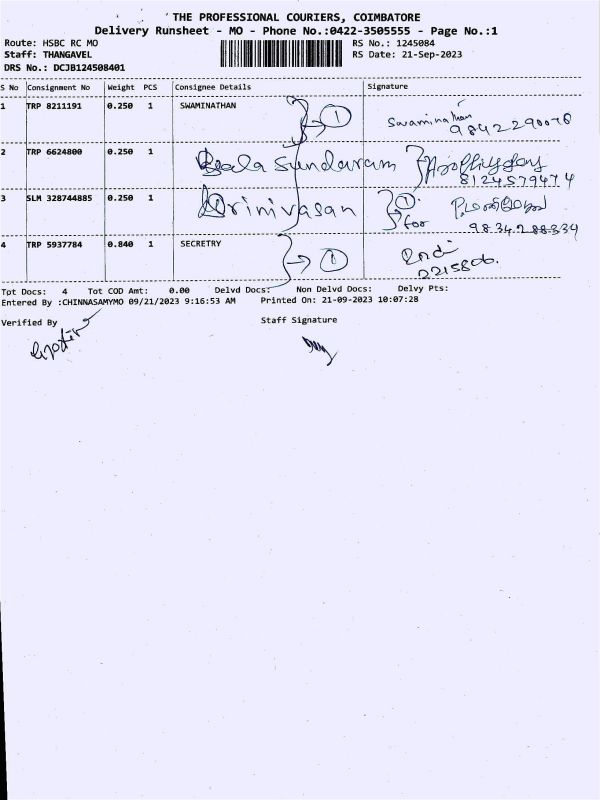 THE PROFESSIONAL COURIERS, COIMBATORE
Delivery Runsheet - MO - Phone No.:0422-3505555 - Page No.:1
Route: HSBC RC MO
RS No.: 1245084
Staff: THANGAVEL
RS Date: 21-Sep-2023
DRS No.: DCJB124508401
S No Consignment No Weight PCS Consignee Details Signature
1 TRP 8211191 0.250 1 SWAMINATHAN 1 Swaminathan
9842290076
2 TRP 6624800 0.250 1 Bala Sundaram
8124579474
3 SLM 328744885 0.250 1 Srinivasan 1 for
9834288334
4 TRP 5937784 0.840 1 SECRETRY 1
2215806.
Tot Docs: 4 Tot COD Amt: 0.00 Delvd Docs: Non Delvd Docs: Delvy Pts:
Entered By :CHINNASAMYMO 09/21/2023 9:16:53 AM Printed On: 21-09-2023 10:07:28
Verified By Staff Signature